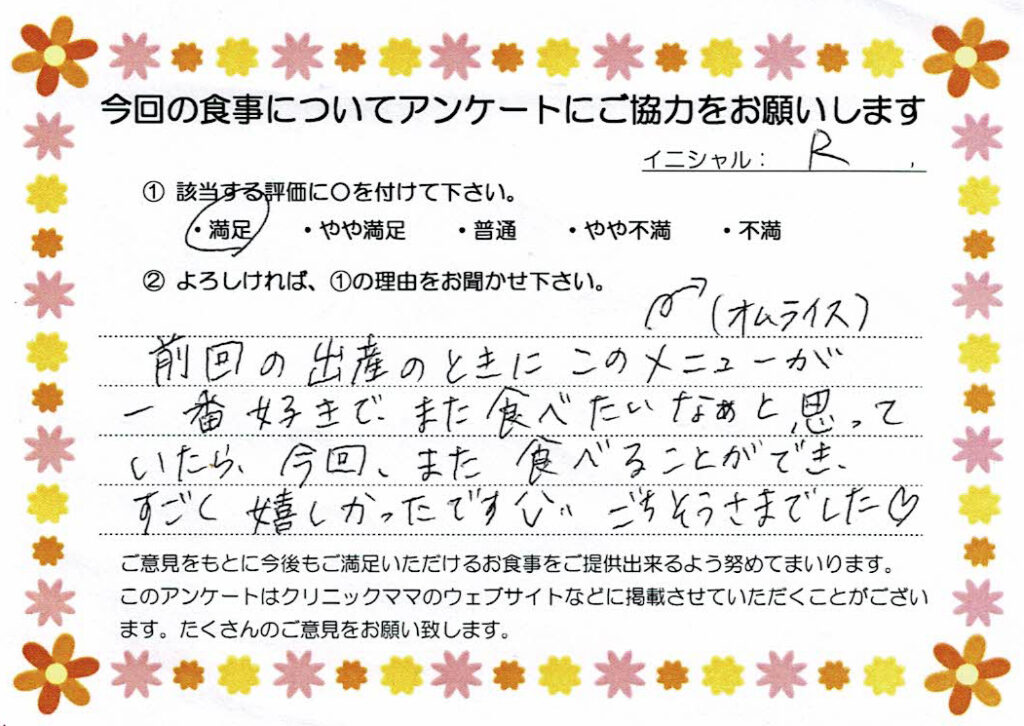 今回の食事についてアンケートにご協力をお願いします
イニシャル： R .
① 該当する評価に〇を付けて下さい。
・満足 ・やや満足 ・普通 ・やや不満 ・不満
② よろしければ、①の理由をお聞かせ下さい。
(オムライス)
前回の出産のときにこのメニューが
一番好きで、また食べたいなぁと思って
いたら、今回、また食べることができ、
すごく嬉しかったです ごちそうさまでした♡
ご意見をもとに今後もご満足いただけるお食事をご提供出来るよう努めてまいります。
このアンケートはクリニックママのウェブサイトなどに掲載させていただくことがござい
ます。たくさんのご意見をお願い致します。